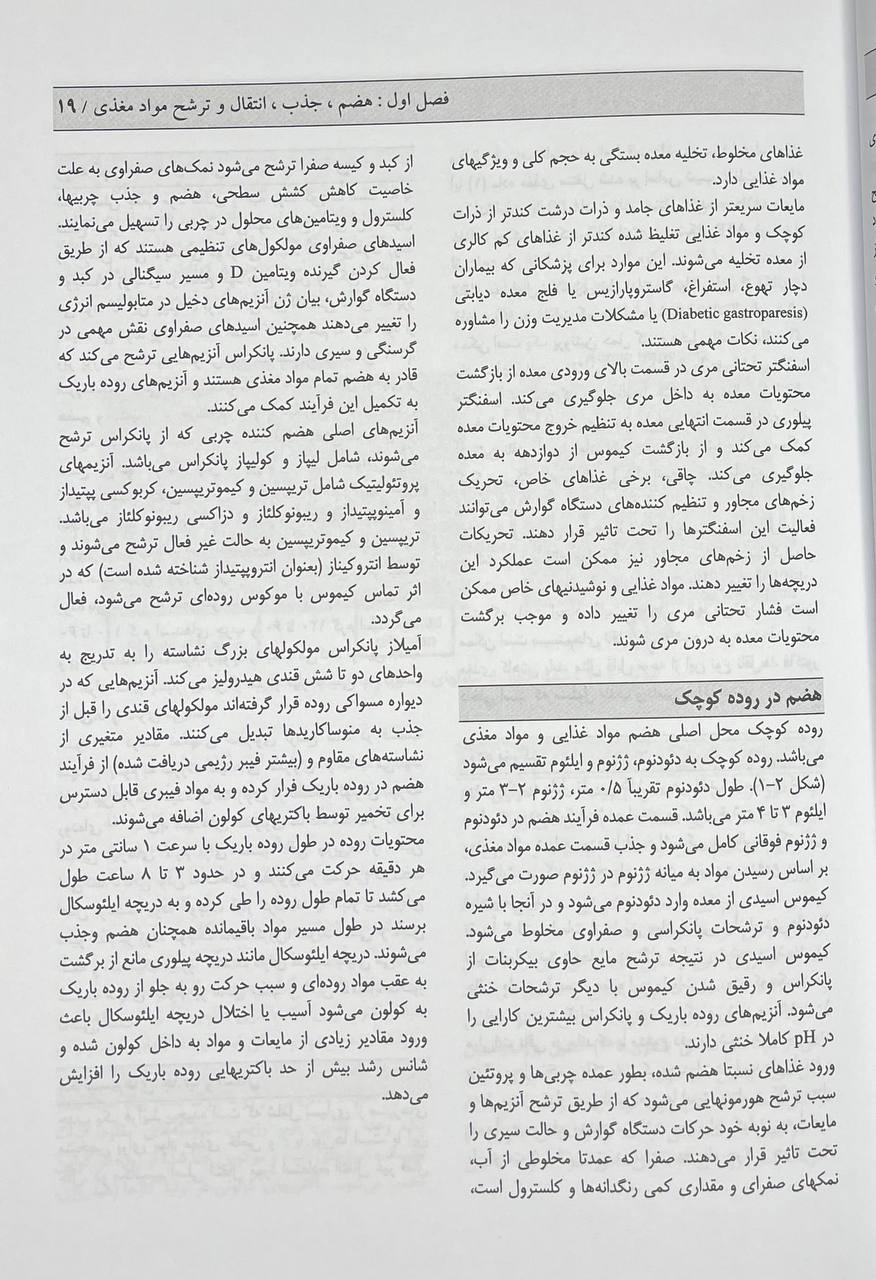 فصل اول : هضم ، جذب ، انتقال و ترشح مواد مغذی / ۱۹
غذاهای مخلوط، تخلیه معده بستگی به حجم کلی و ویژگیهای
مواد غذایی دارد.
مایعات سریعتر از غذاهای جامد و ذرات درشت کندتر از ذرات
کوچک و مواد غذایی تغلیظ شده کندتر از غذاهای کم کالری
از معده تخلیه می‌شوند. این موارد برای پزشکانی که بیماران
دچار تهوع، استفراغ، گاستروپارازیس یا فلج معده دیابتی
(Diabetic gastroparesis) یا مشکلات مدیریت وزن را مشاوره
می‌کنند، نکات مهمی هستند.
اسفنگتر تحتانی مری در قسمت بالای ورودی معده از بازگشت
محتویات معده به داخل مری جلوگیری می‌کند. اسفنگتر
پیلوری در قسمت انتهایی معده به تنظیم خروج محتویات معده
کمک می‌کند و از بازگشت کیموس از دوازدهه به معده
جلوگیری می‌کند. چاقی، برخی غذاهای خاص، تحریک
زخم‌های مجاور و تنظیم کننده‌های دستگاه گوارش می‌توانند
فعالیت این اسفنگترها را تحت تاثیر قرار دهند. تحریکات
حاصل از زخم‌های مجاور نیز ممکن است عملکرد این
دریچه‌ها را تغییر دهند. مواد غذایی و نوشیدنیهای خاص ممکن
است فشار تحتانی مری را تغییر داده و موجب برگشت
محتویات معده به درون مری شوند.
هضم در روده کوچک
روده کوچک محل اصلی هضم مواد غذایی و مواد مغذی
می‌باشد. روده کوچک به دئودنوم، ژژنوم و ایلئوم تقسیم می‌شود
(شکل ۲-۱). طول دئودنوم تقریباً ۰/۵ متر، ژژنوم ۲-۳ متر و
ایلئوم ۳ تا ۴ متر می‌باشد. قسمت عمده فرآیند هضم در دئودنوم
و ژژنوم فوقانی کامل می‌شود و جذب قسمت عمده مواد مغذی،
بر اساس رسیدن مواد به میانه ژژنوم در ژژنوم صورت می‌گیرد.
کیموس اسیدی از معده وارد دئودنوم می‌شود و در آنجا با شیره
دئودنوم و ترشحات پانکراسی و صفراوی مخلوط می‌شود.
کیموس اسیدی در نتیجه ترشح مایع حاوی بیکربنات از
پانکراس و رقیق شدن کیموس با دیگر ترشحات خنثی
می‌شود. آنزیم‌های روده باریک و پانکراس بیشترین کارایی را
در pH کاملا خنثی دارند.
ورود غذاهای نسبتا هضم شده، بطور عمده چربی‌ها و پروتئین
سبب ترشح هورمونهایی می‌شود که از طریق ترشح آنزیم‌ها و
مایعات، به نوبه خود حرکات دستگاه گوارش و حالت سیری را
تحت تاثیر قرار می‌دهند. صفرا که عمدتا مخلوطی از آب،
نمکهای صفرای و مقداری کمی رنگدانه‌ها و کلسترول است،
از کبد و کیسه صفرا ترشح می‌شود نمک‌های صفراوی به علت
خاصیت کاهش کشش سطحی، هضم و جذب چربیها،
کلسترول و ویتامین‌های محلول در چربی را تسهیل می‌نمایند.
اسیدهای صفراوی مولکول‌های تنظیمی هستند که از طریق
فعال کردن گیرنده ویتامین D و مسیر سیگنالی در کبد و
دستگاه گوارش، بیان ژن آنزیم‌های دخیل در متابولیسم انرژی
را تغییر می‌دهند همچنین اسیدهای صفراوی نقش مهمی در
گرسنگی و سیری دارند. پانکراس آنزیم‌هایی ترشح می‌کند که
قادر به هضم تمام مواد مغذی هستند و آنزیم‌های روده باریک
به تکمیل این فرآیند کمک می‌کنند.
آنزیم‌های اصلی هضم کننده چربی که از پانکراس ترشح
می‌شوند، شامل لیپاز و کولیپاز پانکراس می‌باشد. آنزیمهای
پروتئولیتیک شامل تریپسین و کیموتریپسین، کربوکسی پپتیداز
و آمینوپپتیداز و ریبونوکلئاز و دزاکسی ریبونوکلئاز می‌باشد.
تریپسین و کیموتریپسین به حالت غیر فعال ترشح می‌شوند و
توسط انتروکیناز (بعنوان انتروپپتیداز شناخته شده است) که در
اثر تماس کیموس با موکوس روده‌ای ترشح می‌شود، فعال
می‌گردد.
آمیلاز پانکراس مولکولهای بزرگ نشاسته را به تدریج به
واحدهای دو تا شش قندی هیدرولیز می‌کند. آنزیم‌هایی که در
دیواره مسواکی روده قرار گرفته‌اند مولکولهای قندی را قبل از
جذب به منوساکاریدها تبدیل می‌کنند. مقادیر متغیری از
نشاسته‌های مقاوم و (بیشتر فیبر رژیمی دریافت شده) از فرآیند
هضم در روده باریک فرار کرده و به مواد فیبری قابل دسترس
برای تخمیر توسط باکتریهای کولون اضافه می‌شوند.
محتویات روده در طول روده باریک با سرعت ۱ سانتی متر در
هر دقیقه حرکت می‌کنند و در حدود ۳ تا ۸ ساعت طول
می‌کشد تا تمام طول روده را طی کرده و به دریچه ایلئوسکال
برسند در طول مسیر مواد باقیمانده همچنان هضم وجذب
می‌شوند. دریچه ایلئوسکال مانند دریچه پیلوری مانع از برگشت
به عقب مواد روده‌ای و سبب حرکت رو به جلو از روده باریک
به کولون می‌شود آسیب یا اختلال دریچه ایلئوسکال باعث
ورود مقادیر زیادی از مایعات و مواد به داخل کولون شده و
شانس رشد بیش از حد باکتریهایی روده باریک را افزایش
می‌دهد.